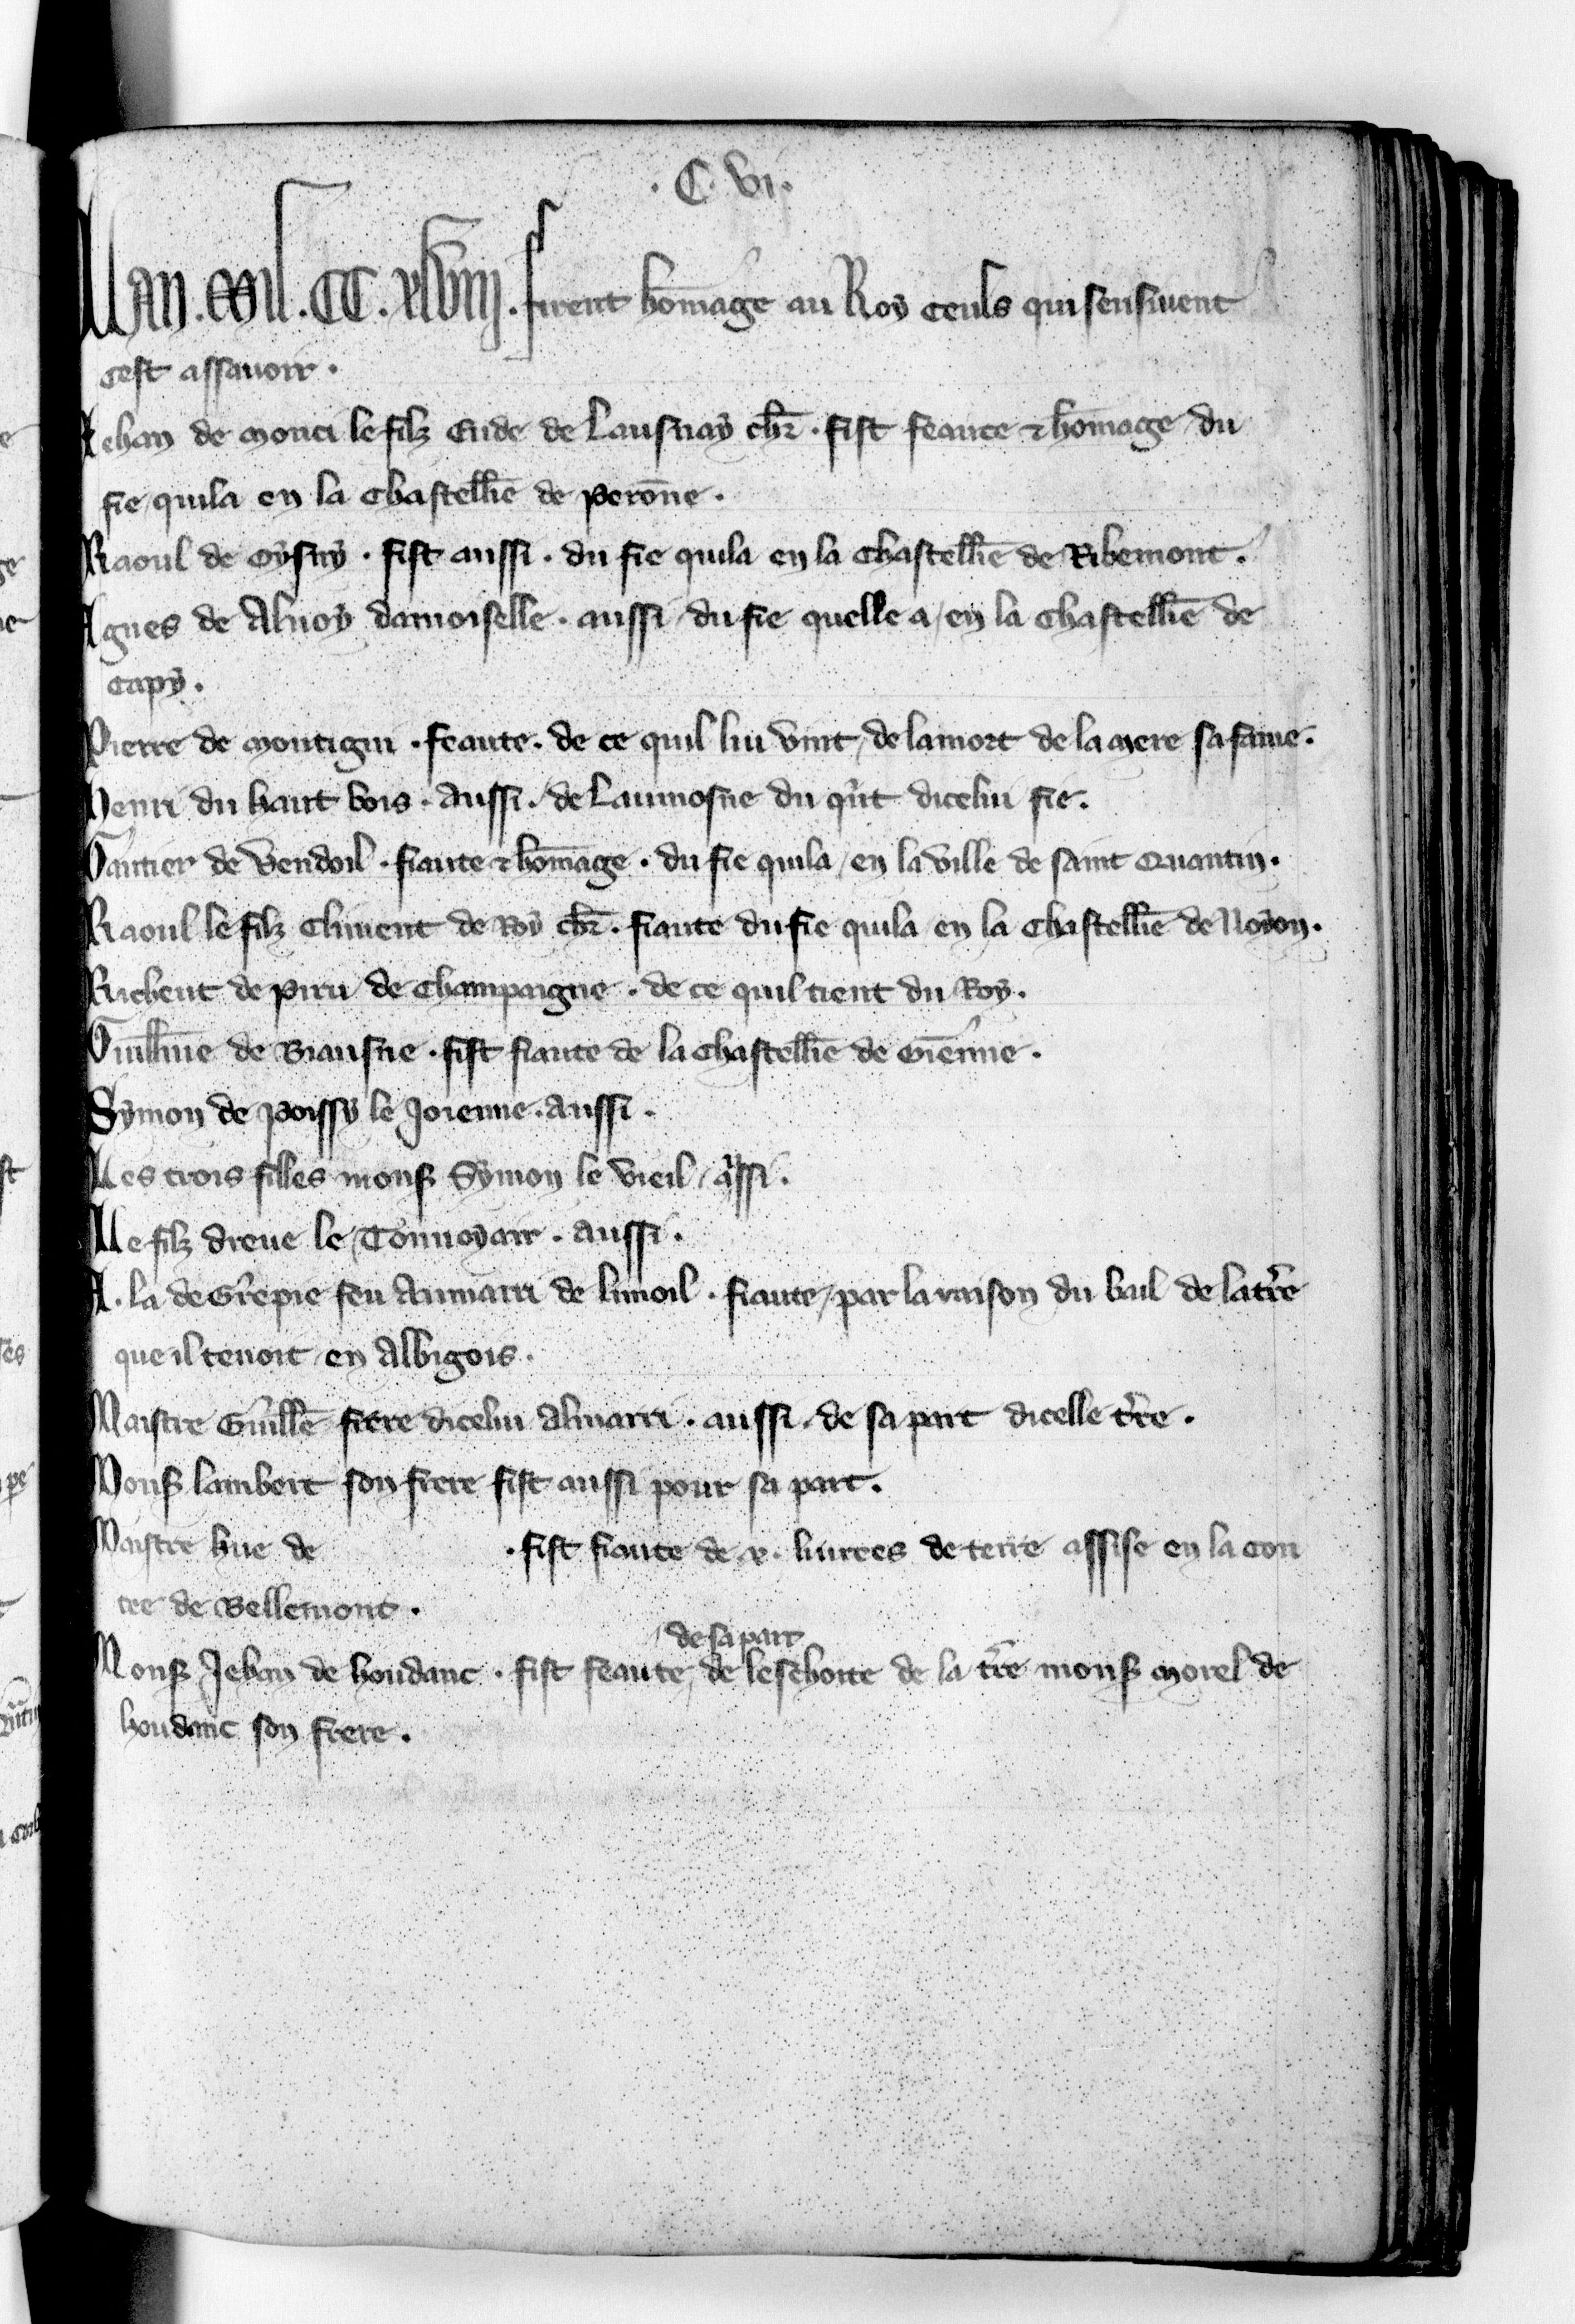 . C. vi.
Lan . Mil . CC . xlviij . firent hom̄age au Roy ceuls qui sensiuent
cest assauoir .
Jehan de Monci le filz Eude de Lausnay chr̄ . fist feaute ⁊ hom̄age du
fie quila en la Chastell̄ie de Perōne .
Raoul de Oysny . fist aussi . du fie quila en la Chastell̄ie de Ribemont .
Agnes de Alnoy damoiselle . aussi / du fie quelle a / en la Chastell̄ie de
Capy .
Pierre de Montigni . feaute . de ce quil lui vint / de lamort de la mere sa fame .
Henri du haut bois . aussi . de Laumosne du q̄nt dicelui fie .
Gautier de Vendoil . fiaute ⁊ hom̄age . du fie quila / en la ville de saint Quantin .
Raoul le filz Climent de Roy chr̄ . fiaute du fie quila / en la Chastell̄ie de Noyon .
Richeut de Piru de Champaigne . de ce quil tient du Roy .
Guill̄me de Biausne . fist fiaute de la Chastell̄ie de
Symon de Poissy le Joienne . aussi .
Les trois filles mons̄ Symon le vieil / aussi .
Le filz dreue le / Tonnoyair . aussi .
A . la deGr̄epie feu Aimarri de limoil . fiaute / par la raison du bail de la tr̄re
que il tenoit / en Albigois .
Maistre Guill̄e frere dicelui Almarri . aussi . de sa part dicelle tr̄re .
Mons̄ lambert son frere fist aussi pour sa part .
Maistre hue de . fist fiaute de x . liurees de terre assise en la Con
tee de Bellemont .
/ de sa part
Mons̄ Jehan de houdanc . fist feaute / de leschoite de la tr̄re mons̄ Morel de
houdanc son frere .